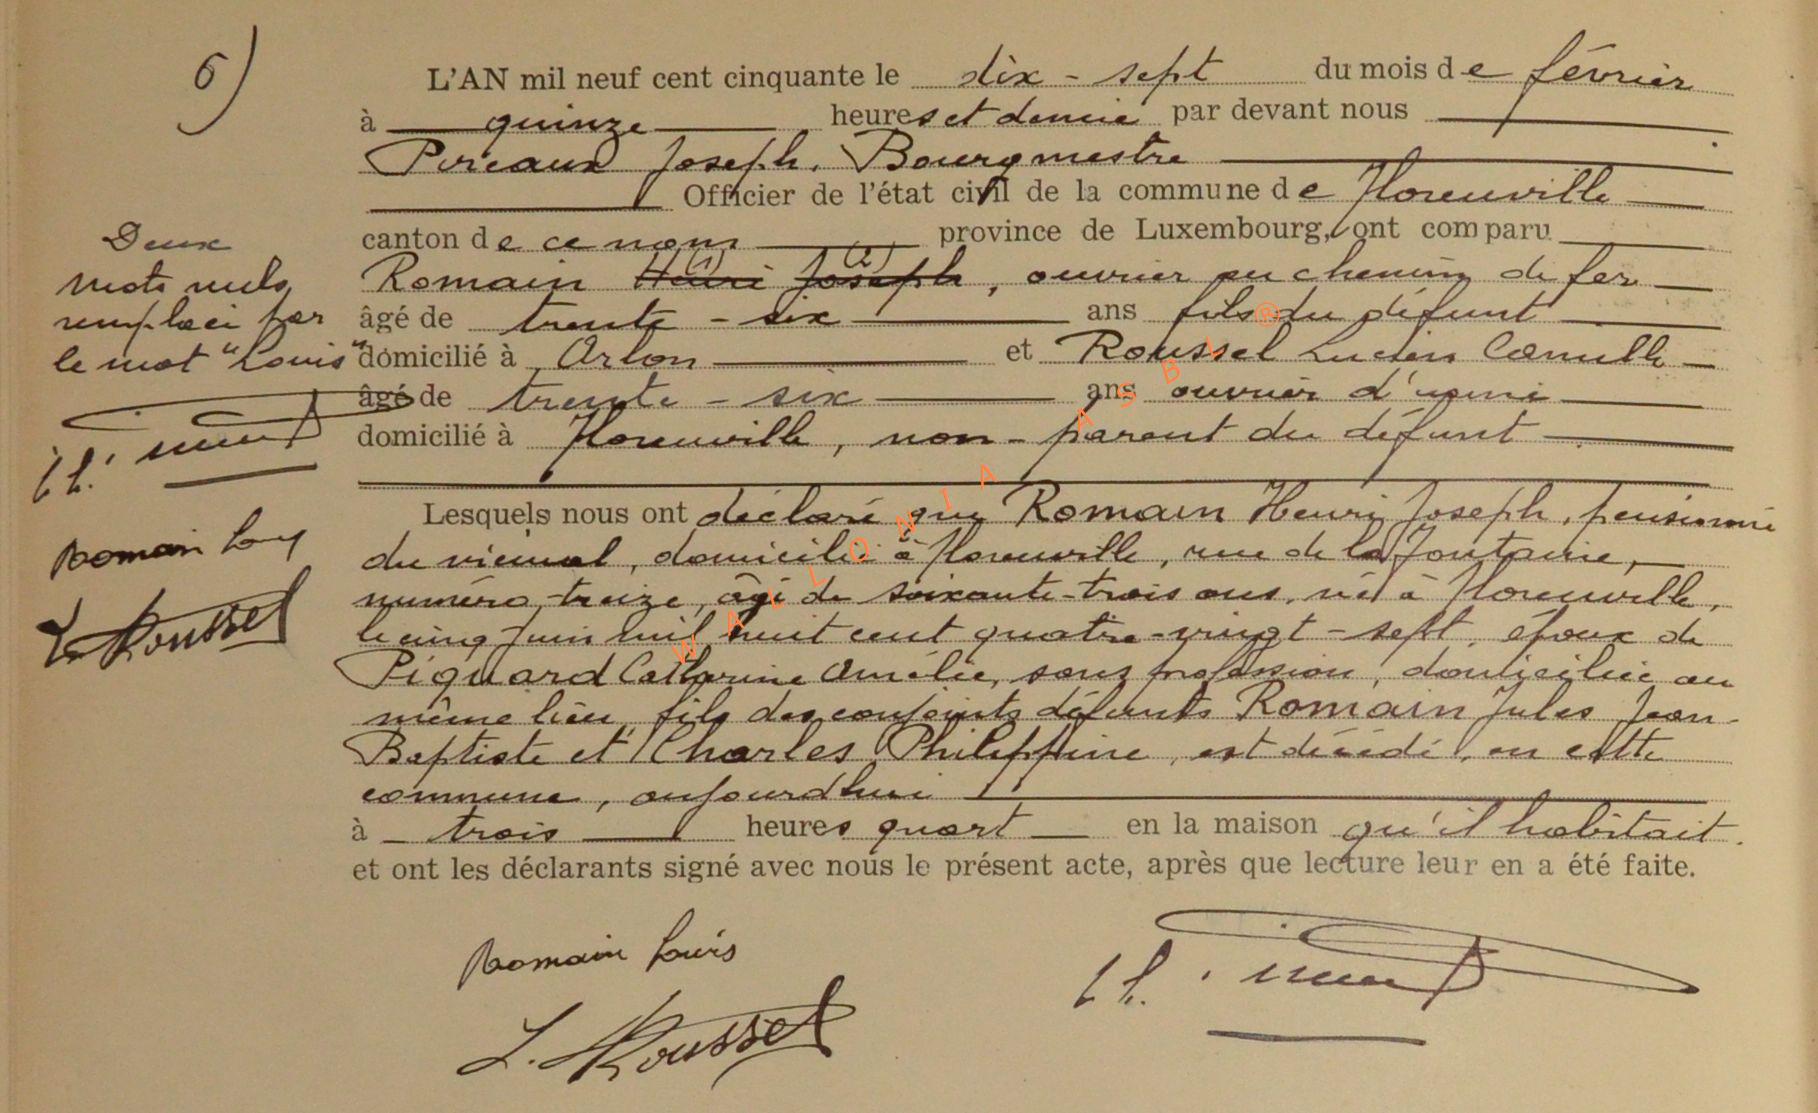 6)
L'AN mil neuf cent cinquante le dix-sept du mois de février
à quinze heures et demie par devant nous
Pireaux Joseph. Bourgmestre
Officier de l'état civil de la commune de Florenville
canton de ce nom province de Luxembourg, ont comparu
Romain Henri (1) Joseph (2), ouvrier au chemin de fer
âgé de trente-six ans fils du défunt
domicilié à Arlon et Roussel Lucien Camille
âgé de trente-six ans ouvrier d'usine
domicilié à Florenville, non-parent du défunt
Lesquels nous ont déclaré que Romain Henri Joseph, pensionné
du vicinal, domicilié à Florenville, rue de la Fontaine,
numéro treize, âgé de soixante-trois ans, né à Florenville,
le cinq Juin mil huit cent quatre-vingt-sept, époux de
Piquard Catherine Amélie, sans profession, domiciliée au
même lieu, fils des conjoints défunts Romain Jules Jean-
Baptiste et Charles Philippine, est décédé, en cette
commune, aujourd'hui
à trois heures quart en la maison qu'il habitait.
et ont les déclarants signé avec nous le présent acte, après que lecture leur en a été faite.
Deux
mots nuls
remplacé par
le mot "Louis"
Romain Louis
L. Roussel
Romain Louis
L. Roussel
WALLONIA ASBL ®